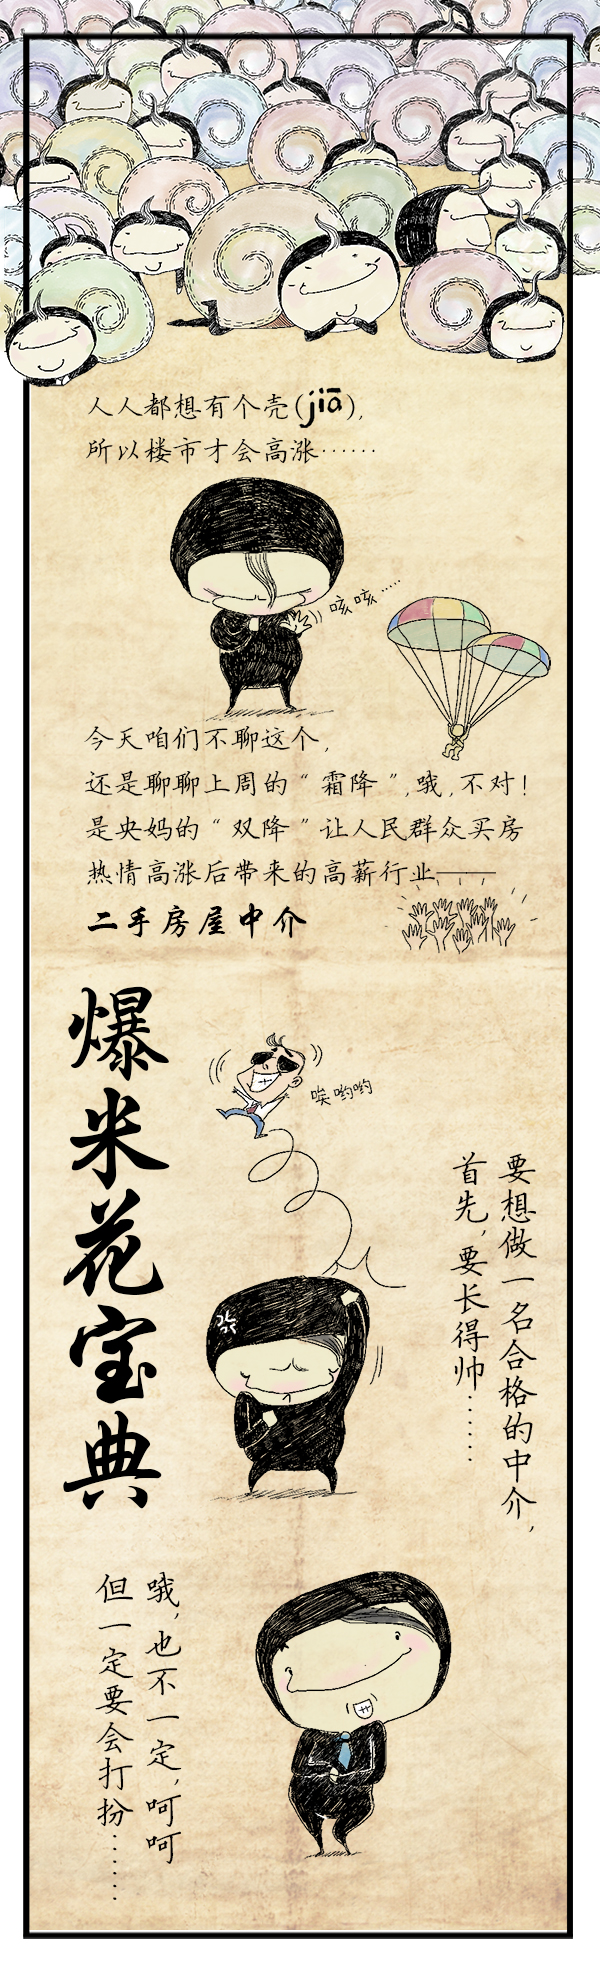 人人都想有个壳(jiā),
所以楼市才会高涨……
咳咳……
今天咱们不聊这个,
还是聊聊上周的“霜降”,哦,不对!
是央妈的“双降”让人民群众买房
热情高涨后带来的高薪行业——
二手房屋中介
爆米花宝典
唉哟哟
要想做一名合格的中介,
首先,要长得帅……
哦,也不一定,呵呵
但一定要会打扮……